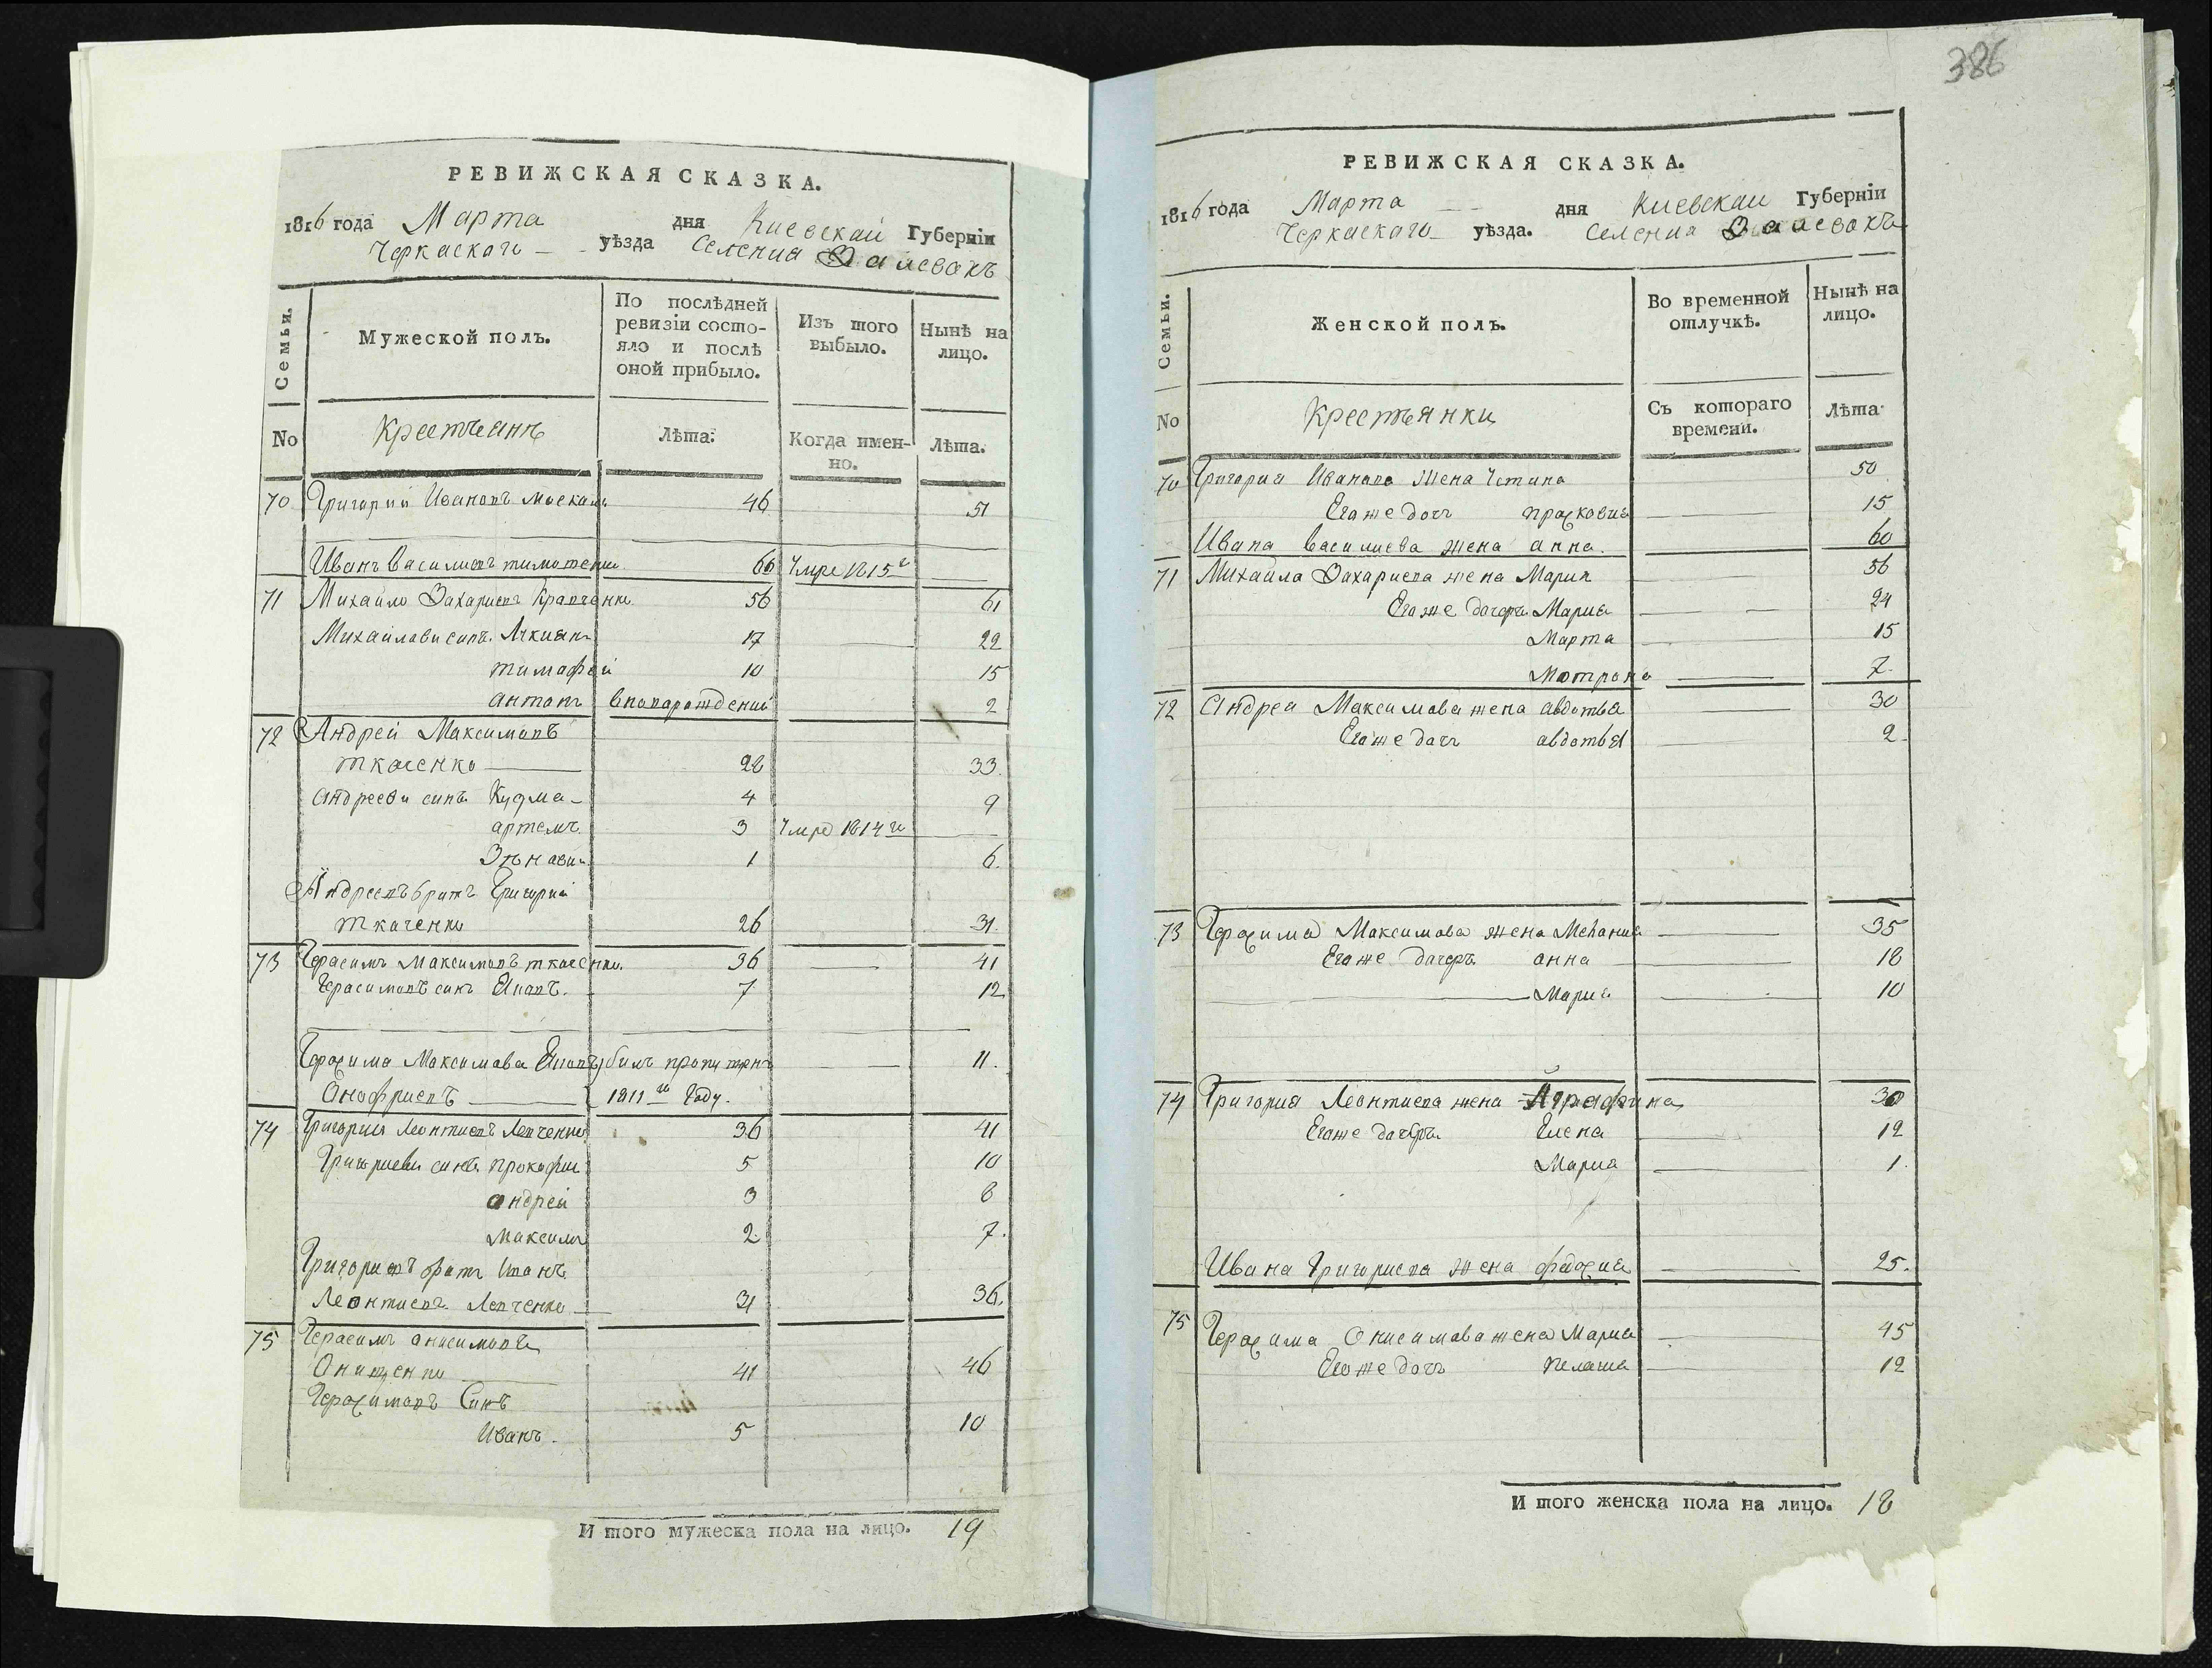 386
РЕВИЖСКАЯ СКАЗКА.
1816 года Марта дня Киевскай Губерніи
Черкаскаго уѣзда Селения Валевакъ
Семьи.
Мужеской полъ.
По послѣдней
ревизіи состо-
яло и послѣ
оной прибыло.
Изъ того
выбыло.
Нынѣ на
лицо.
No
Крестьянъ
Лѣта:
Когда имен-
но.
Лѣта.
70 Григорий Ивановъ Москаль 46 51
Иванъ Василиевъ тимошенко 66 Умре 1815г
71 Михайло Захариевъ Кравченко 56 61
Михайлови сини 17 22
тимофей 10 15
антонъ вноварожденний 2
72 Андрей Максимовъ
ткаченко 28 33.
Андрееви сини Кузма 4 9
артемъ 3 Умре 1814го
Зѣнови 1 6.
Андреевъ братъ Григорий
ткаченко 26 31.
73 Герасимъ Максимовъ ткаченко. 36 41
Герасимовъ синъ 7 12
Герасима Максимова билъ пропущенъ 11.
Онофриевъ 1811го Году.
74 Григорий Леонтиевъ Левченко 36 41
Григориеви сини прокофий 5 10
андрей 3 8
Максимъ 2. 7.
Григориевъ братъ Иванъ
Леонтиевъ Левченко 31 36.
75 Герасимъ анисимовъ
Онищенко 41 46
Герасимовъ Синъ
Иванъ. 5 10
И того мужеска пола на лицо. 19
РЕВИЖСКАЯ СКАЗКА.
1816 года Марта дня Киевскаи Губерніи
Черкаскаго уѣзда. Селения Валевакъ
Семьи.
Женской полъ.
Во временной
отлучкѣ.
Нынѣ на
лицо.
No
Крестьянки
Съ котораго
времени.
Лѣта
70 Григория Иванова жена Устина 50
Егоже дочь прасковия 15
Ивана василиева жена анна. 60
71 Михайла Захариева жена Мария 56
Егоже дочери Мария 24
Марта 15
Мотрона 7.
72 Андрея Максимова жена авдотья 30
Егоже дочь авдотья 2.
73 Герасима Максимова жена Мелания 35
Егоже дочери анна 18
Мария 10
74 Григория Леонтиева жена Аграфина 30
Егоже дочери Елена 12
Мария 1.
Ивана Григориева жена 25.
75 Герасима Онисимова жена Мария 45
Егоже дочь 12
И того женска пола на лицо. 18